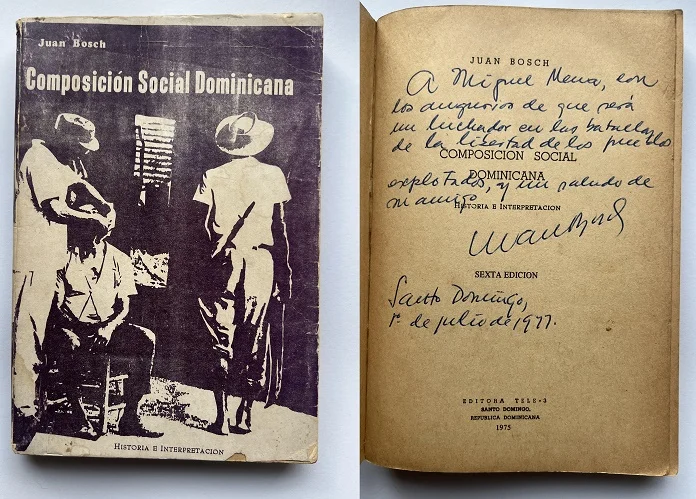 Juan Bosch
Composición Social Dominicana
HISTORIA E INTERPRETACION
JUAN BOSCH
A Miguel Mena, con
los augurios de que será
un luchador en las batallas
de la libertad de los pueblos
COMPOSICION SOCIAL
DOMINICANA
explotados, y un saludo de
su amigo
HISTORIA E INTERPRETACION
Juan Bosch
SEXTA EDICION
Santo Domingo,
1º de julio de 1977.
EDITORA TELE-3
SANTO DOMINGO,
REPUBLICA DOMINICANA
1975